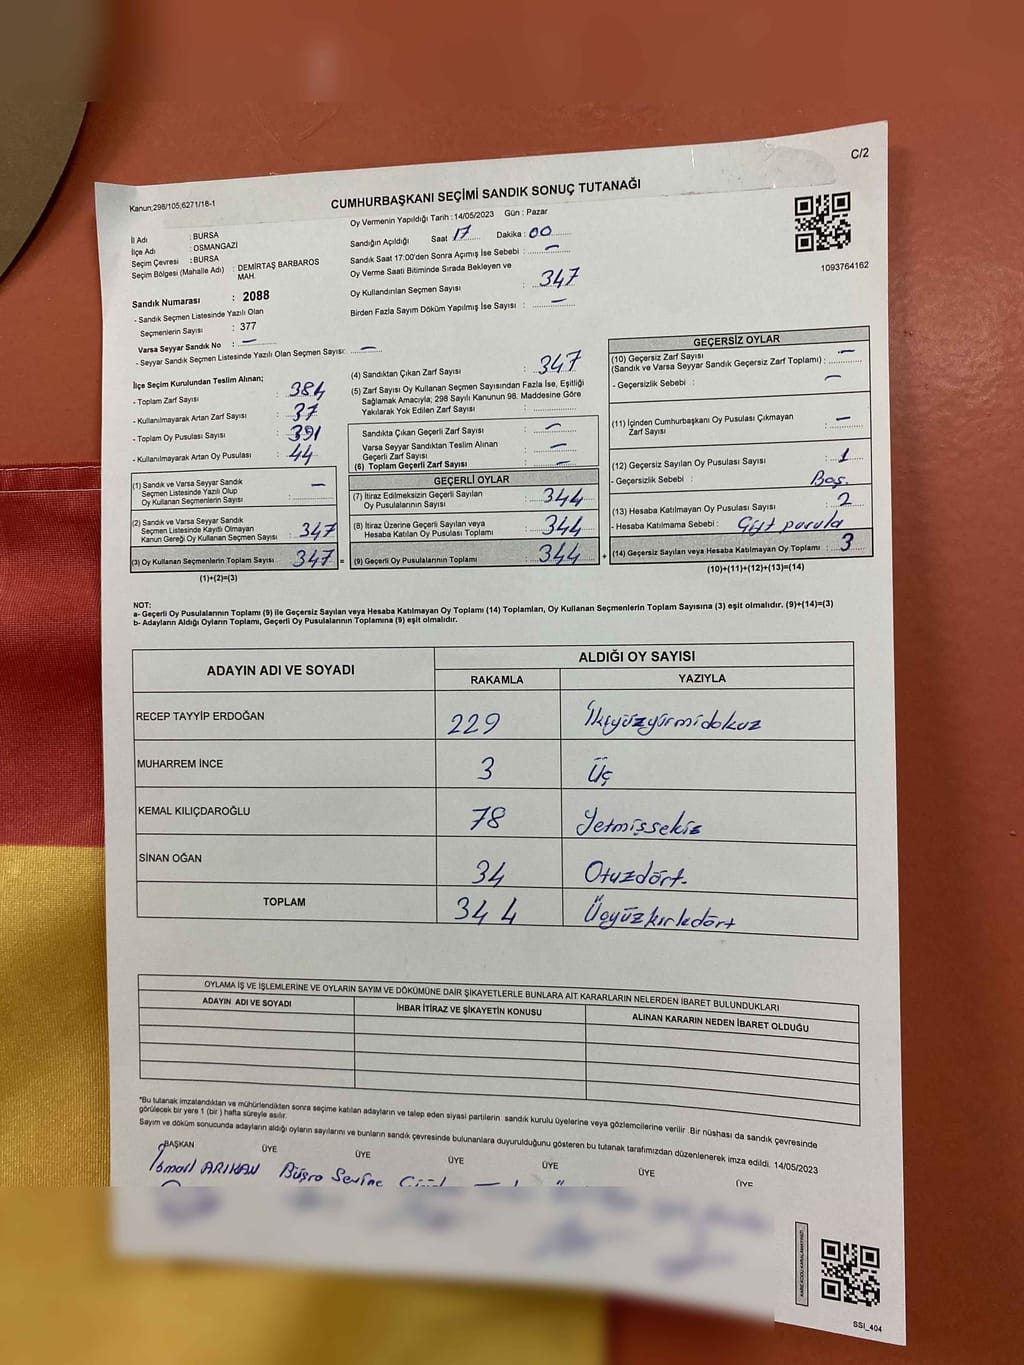 C/2
Kanun;298/105;6271/18-1
CUMHURBAŞKANI SEÇİMİ SANDIK SONUÇ TUTANAĞI
İl Adı : BURSA
İlçe Adı : OSMANGAZİ
Seçim Çevresi : BURSA
Seçim Bölgesi (Mahalle Adı) : DEMİRTAŞ BARBAROS MAH.
Sandık Numarası : 2088
- Sandık Seçmen Listesinde Yazılı Olan
Seçmenlerin Sayısı : 377
Varsa Seyyar Sandık No : —
- Seyyar Sandık Seçmen Listesinde Yazılı Olan Seçmen Sayısı: —
Oy Vermenin Yapıldığı Tarih : 14/05/2023 Gün : Pazar
Sandığın Açıldığı Saat : 17 Dakika : 00
Sandık Saat 17:00'den Sonra Açımış İse Sebebi : —
Oy Verme Saati Bitiminde Sırada Bekleyen ve
Oy Kullandırılan Seçmen Sayısı : 347
Birden Fazla Sayım Döküm Yapılmış İse Sayısı : —
1093764162
İlçe Seçim Kurulundan Teslim Alınan;
- Toplam Zarf Sayısı : 384
- Kullanılmayarak Artan Zarf Sayısı : 37
- Toplam Oy Pusulası Sayısı : 391
- Kullanılmayarak Artan Oy Pusulası : 44
(1) Sandık ve Varsa Seyyar Sandık
Seçmen Listesinde Yazılı Olup
Oy Kullanan Seçmenlerin Sayısı : —
(2) Sandık ve Varsa Seyyar Sandık
Seçmen Listesinde Kayıtlı Olmayan
Kanun Gereği Oy Kullanan Seçmen Sayısı : 347
(3) Oy Kullanan Seçmenlerin Toplam Sayısı : 347 =
(1)+(2)=(3)
(4) Sandıktan Çıkan Zarf Sayısı : 347
(5) Zarf Sayısı Oy Kullanan Seçmen Sayısından Fazla İse, Eşitliği
Sağlamak Amacıyla; 298 Sayılı Kanunun 98. Maddesine Göre
Yakılarak Yok Edilen Zarf Sayısı :
Sandıkta Çıkan Geçerli Zarf Sayısı : —
Varsa Seyyar Sandıktan Teslim Alınan
Geçerli Zarf Sayısı : —
(6) Toplam Geçerli Zarf Sayısı : —
GEÇERLİ OYLAR
(7) İtiraz Edilmeksizin Geçerli Sayılan
Oy Pusulalarının Sayısı : 344
(8) İtiraz Üzerine Geçerli Sayılan veya
Hesaba Katılan Oy Pusulası Toplamı : 344
(9) Geçerli Oy Pusulalarının Toplamı : 344 +
GEÇERSİZ OYLAR
(10) Geçersiz Zarf Sayısı
(Sandık ve Varsa Seyyar Sandık Geçersiz Zarf Toplamı) : —
- Geçersizlik Sebebi : —
(11) İçinden Cumhurbaşkanı Oy Pusulası Çıkmayan
Zarf Sayısı : —
(12) Geçersiz Sayılan Oy Pusulası Sayısı : 1
- Geçersizlik Sebebi : Boş.
(13) Hesaba Katılmayan Oy Pusulası Sayısı : 2
- Hesaba Katılmama Sebebi : Çift pusula
(14) Geçersiz Sayılan veya Hesaba Katılmayan Oy Toplamı : 3
(10)+(11)+(12)+(13)=(14)
NOT:
a- Geçerli Oy Pusulalarının Toplamı (9) ile Geçersiz Sayılan veya Hesaba Katılmayan Oy Toplamı (14) Toplamları, Oy Kullanan Seçmenlerin Toplam Sayısına (3) eşit olmalıdır. (9)+(14)=(3)
b- Adayların Aldığı Oyların Toplamı, Geçerli Oy Pusulalarının Toplamına (9) eşit olmalıdır.
ADAYIN ADI VE SOYADI ALDIĞI OY SAYISI
RAKAMLA YAZIYLA
RECEP TAYYİP ERDOĞAN 229 İkiyüzyirmidokuz
MUHARREM İNCE 3 Üç
KEMAL KILIÇDAROĞLU 78 Yetmişsekiz
SİNAN OĞAN 34 Otuzdört.
TOPLAM 344 Üçyüzkırkdört
OYLAMA İŞ VE İŞLEMLERİNE VE OYLARIN SAYIM VE DÖKÜMÜNE DAİR ŞİKAYETLERLE BUNLARA AİT KARARLARIN NELERDEN İBARET BULUNDUKLARI
ADAYIN ADI VE SOYADI İHBAR İTİRAZ VE ŞİKAYETİN KONUSU ALINAN KARARIN NEDEN İBARET OLDUĞU
*Bu tutanak imzalandıktan ve mühürlendikten sonra seçime katılan adayların ve talep eden siyasi partilerin sandık kurulu üyelerine veya gözlemcilerine verilir .Bir nüshası da sandık çevresinde
görülecek bir yere 1 (bir ) hafta süreyle asılır.
Sayım ve döküm sonucunda adayların aldığı oyların sayılarını ve bunların sandık çevresinde bulunanlara duyurulduğunu gösteren bu tutanak tarafımızdan düzenlenerek imza edildi. 14/05/2023
BAŞKAN ÜYE ÜYE ÜYE ÜYE ÜYE ÜYE
İsmail ARIKAN Büşra
SSI_404